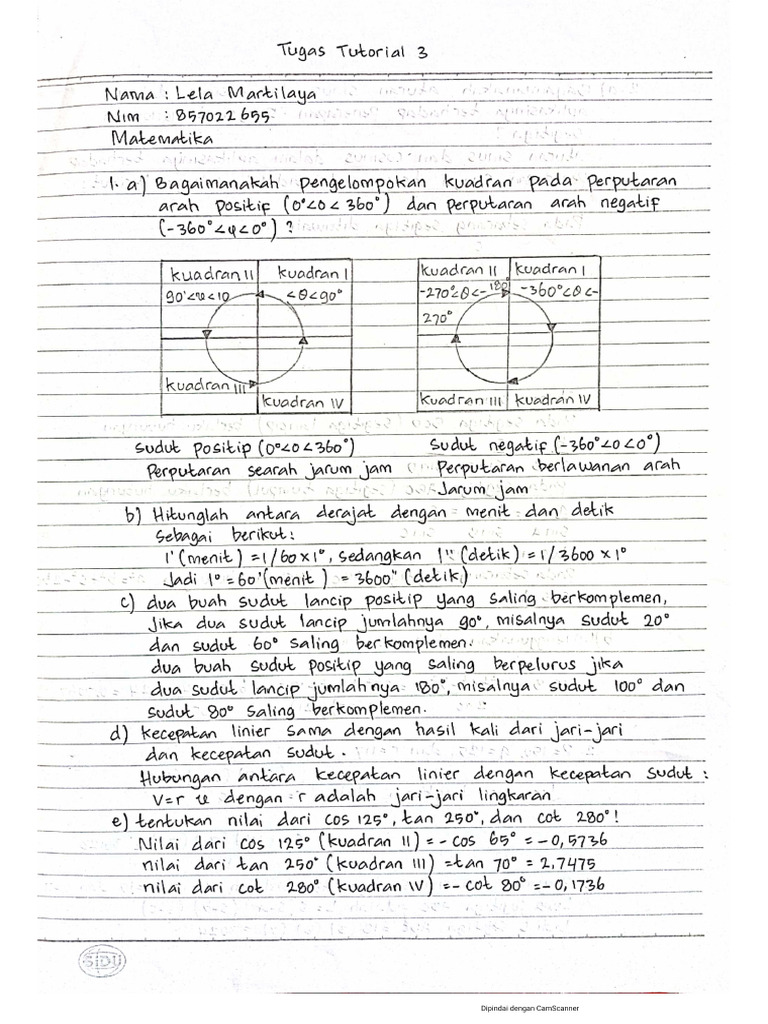 Tugas Tutorial 3
Nama : Lela Martilaya
Nim : 857022655
Matematika
1. a) Bagaimanakah pengelompokan kuadran pada perputaran
arah positif (0°<0<360°) dan perputaran arah negatif
(-360°<φ<0°) ?
Kuadran II Kuadran I
90°<u<10 <θ<90°
Kuadran III
Kuadran IV
Kuadran II Kuadran I
-270°<θ<-180° -360°<θ<-
270°
Kuadran III Kuadran IV
Sudut positip (0°<0<360°)
Perputaran searah jarum jam
Sudut negatif (-360°<0<0°)
Perputaran berlawanan arah
Jarum jam
b) Hitunglah antara derajat dengan menit dan detik
sebagai berikut:
1' (menit) = 1/60 x 1°, sedangkan 1" (detik) = 1/3600 x 1°
Jadi 1° = 60' (menit) = 3600" (detik)
c) dua buah sudut lancip positip yang saling berkomplemen,
Jika dua sudut lancip jumlahnya 90°, misalnya sudut 20°
dan sudut 60° saling berkomplemen.
dua buah sudut positip yang saling berpelurus jika
dua sudut lancip jumlahnya 180°, misalnya sudut 100° dan
sudut 80° saling berkomplemen.
d) kecepatan linier sama dengan hasil kali dari jari-jari
dan kecepatan sudut.
Hubungan antara kecepatan linier dengan kecepatan sudut :
V=r u dengan r adalah jari-jari lingkaran
e) tentukan nilai dari cos 125°, tan 250°, dan cot 280° !
Nilai dari cos 125° (kuadran II) = - cos 65° = -0,5736
nilai dari tan 250° (kuadran III) = tan 70° = 2,7475
nilai dari cot 280° (kuadran IV) = - cot 80° = -0,1736
SIDU
Dipindai dengan CamScanner